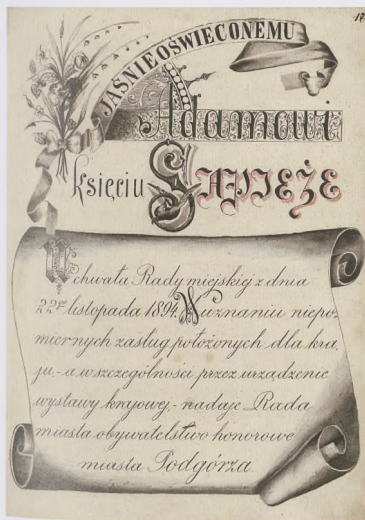 JAŚNIEOŚWIECONEMU
Adamowi
księciu SAPIEŻE
Uchwała Rady miejskiej z dnia
22go listopada 1894. W uznaniu niepo-
miernych zasług, położonych dla kra-
ju, - a w szczególności przez urządzenie
wystawy krajowej, - nadaje Rada
miasta obywatelstwo honorowe
miasta Podgórza.